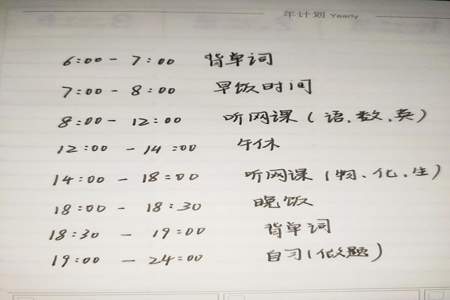 年计划 Yearly
6:00 - 7:00 背单词
7:00 - 8:00 早饭时间
8:00 - 12:00 听网课(语、数、英)
12:00 - 14:00 午休
14:00 - 18:00 听网课(物、化、生)
18:00 - 18:30 晚饭
18:30 - 19:00 背单词
19:00 - 24:00 自习(做题)